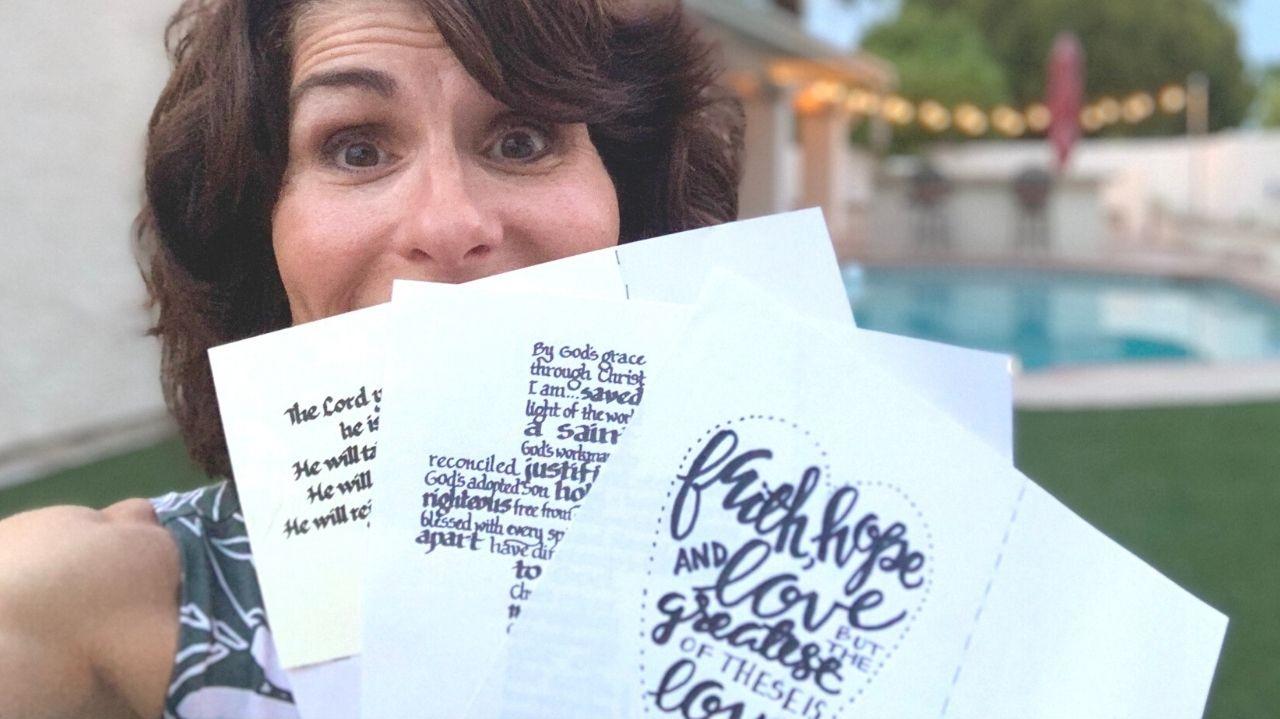 The Lord
he is
He will ta
He will
He will re
By God's grace
through Christ
I am...saved
light of the wor
a sain
God's workma
reconciled justifi
God's adopted son hol
righteous free from
blessed with every sp
apart have dir
to
Ch
faith, hope
AND love
BUT
THE
greatest
OF THESE IS
lov